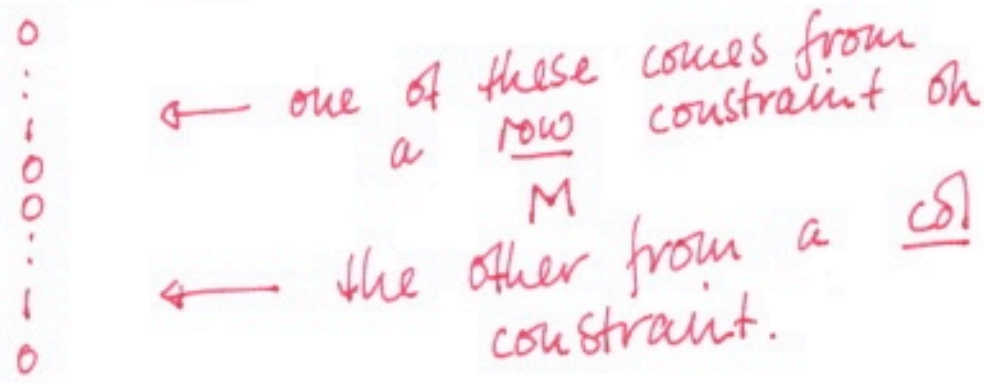 0
:
1
0
0
:
1
0
← one of these comes from
a row constraint on
M
← the other from a col
constraint.